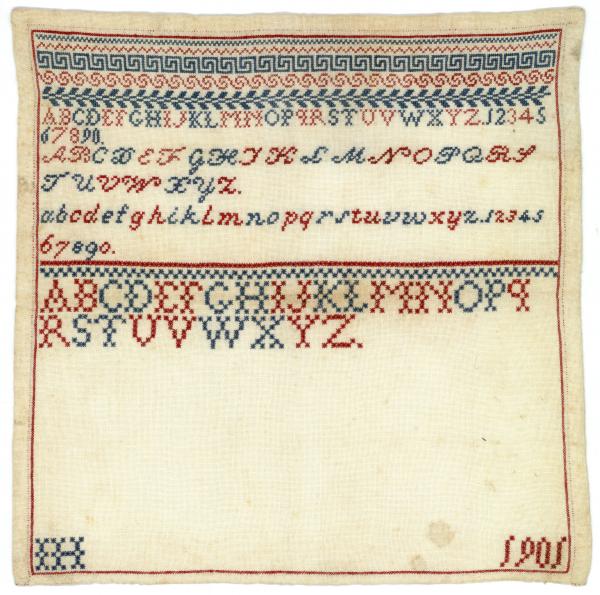 ABCDEFGHIJKLMNOPQRSTUVWXYZ.12345
67890.
ABCDEFGHIJKLMNOPQRS
TUVWXYZ.
abcdefghiklmnopqrstuvwxyz.12345
67890.
ABCDEFGHIJKLMNOPQ
RSTUVWXYZ.
1901